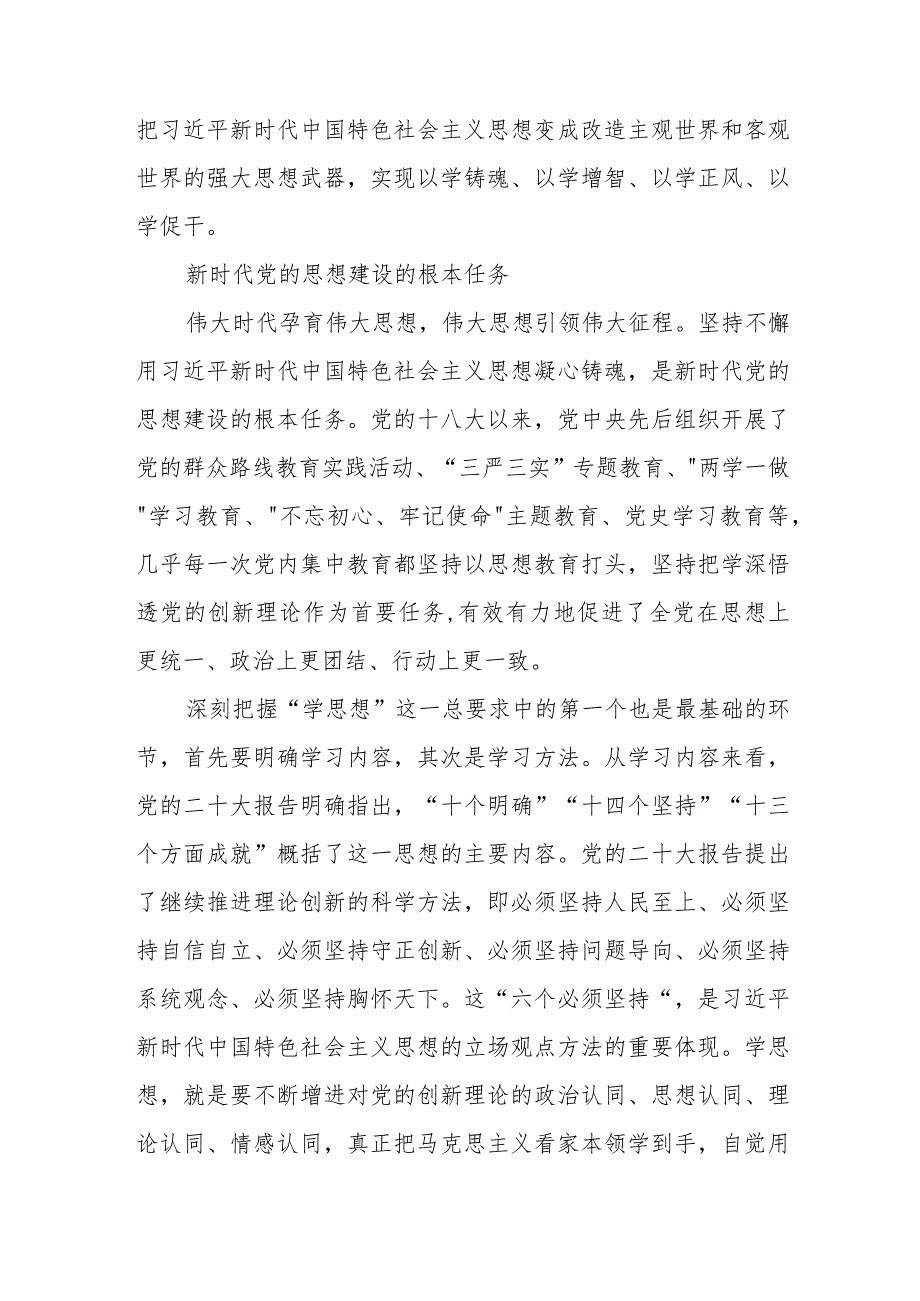 把习近平新时代中国特色社会主义思想变成改造主观世界和客观
世界的强大思想武器，实现以学铸魂、以学增智、以学正风、以
学促干。
新时代党的思想建设的根本任务
伟大时代孕育伟大思想，伟大思想引领伟大征程。坚持不懈
用习近平新时代中国特色社会主义思想凝心铸魂，是新时代党的
思想建设的根本任务。党的十八大以来，党中央先后组织开展了
党的群众路线教育实践活动、“三严三实”专题教育、"两学一做
"学习教育、"不忘初心、牢记使命"主题教育、党史学习教育等，
几乎每一次党内集中教育都坚持以思想教育打头，坚持把学深悟
透党的创新理论作为首要任务,有效有力地促进了全党在思想上
更统一、政治上更团结、行动上更一致。
深刻把握“学思想”这一总要求中的第一个也是最基础的环
节，首先要明确学习内容，其次是学习方法。从学习内容来看，
党的二十大报告明确指出，“十个明确”“十四个坚持”“十三
个方面成就”概括了这一思想的主要内容。党的二十大报告提出
了继续推进理论创新的科学方法，即必须坚持人民至上、必须坚
持自信自立、必须坚持守正创新、必须坚持问题导向、必须坚持
系统观念、必须坚持胸怀天下。这“六个必须坚持“，是习近平
新时代中国特色社会主义思想的立场观点方法的重要体现。学思
想，就是要不断增进对党的创新理论的政治认同、思想认同、理
论认同、情感认同，真正把马克思主义看家本领学到手，自觉用